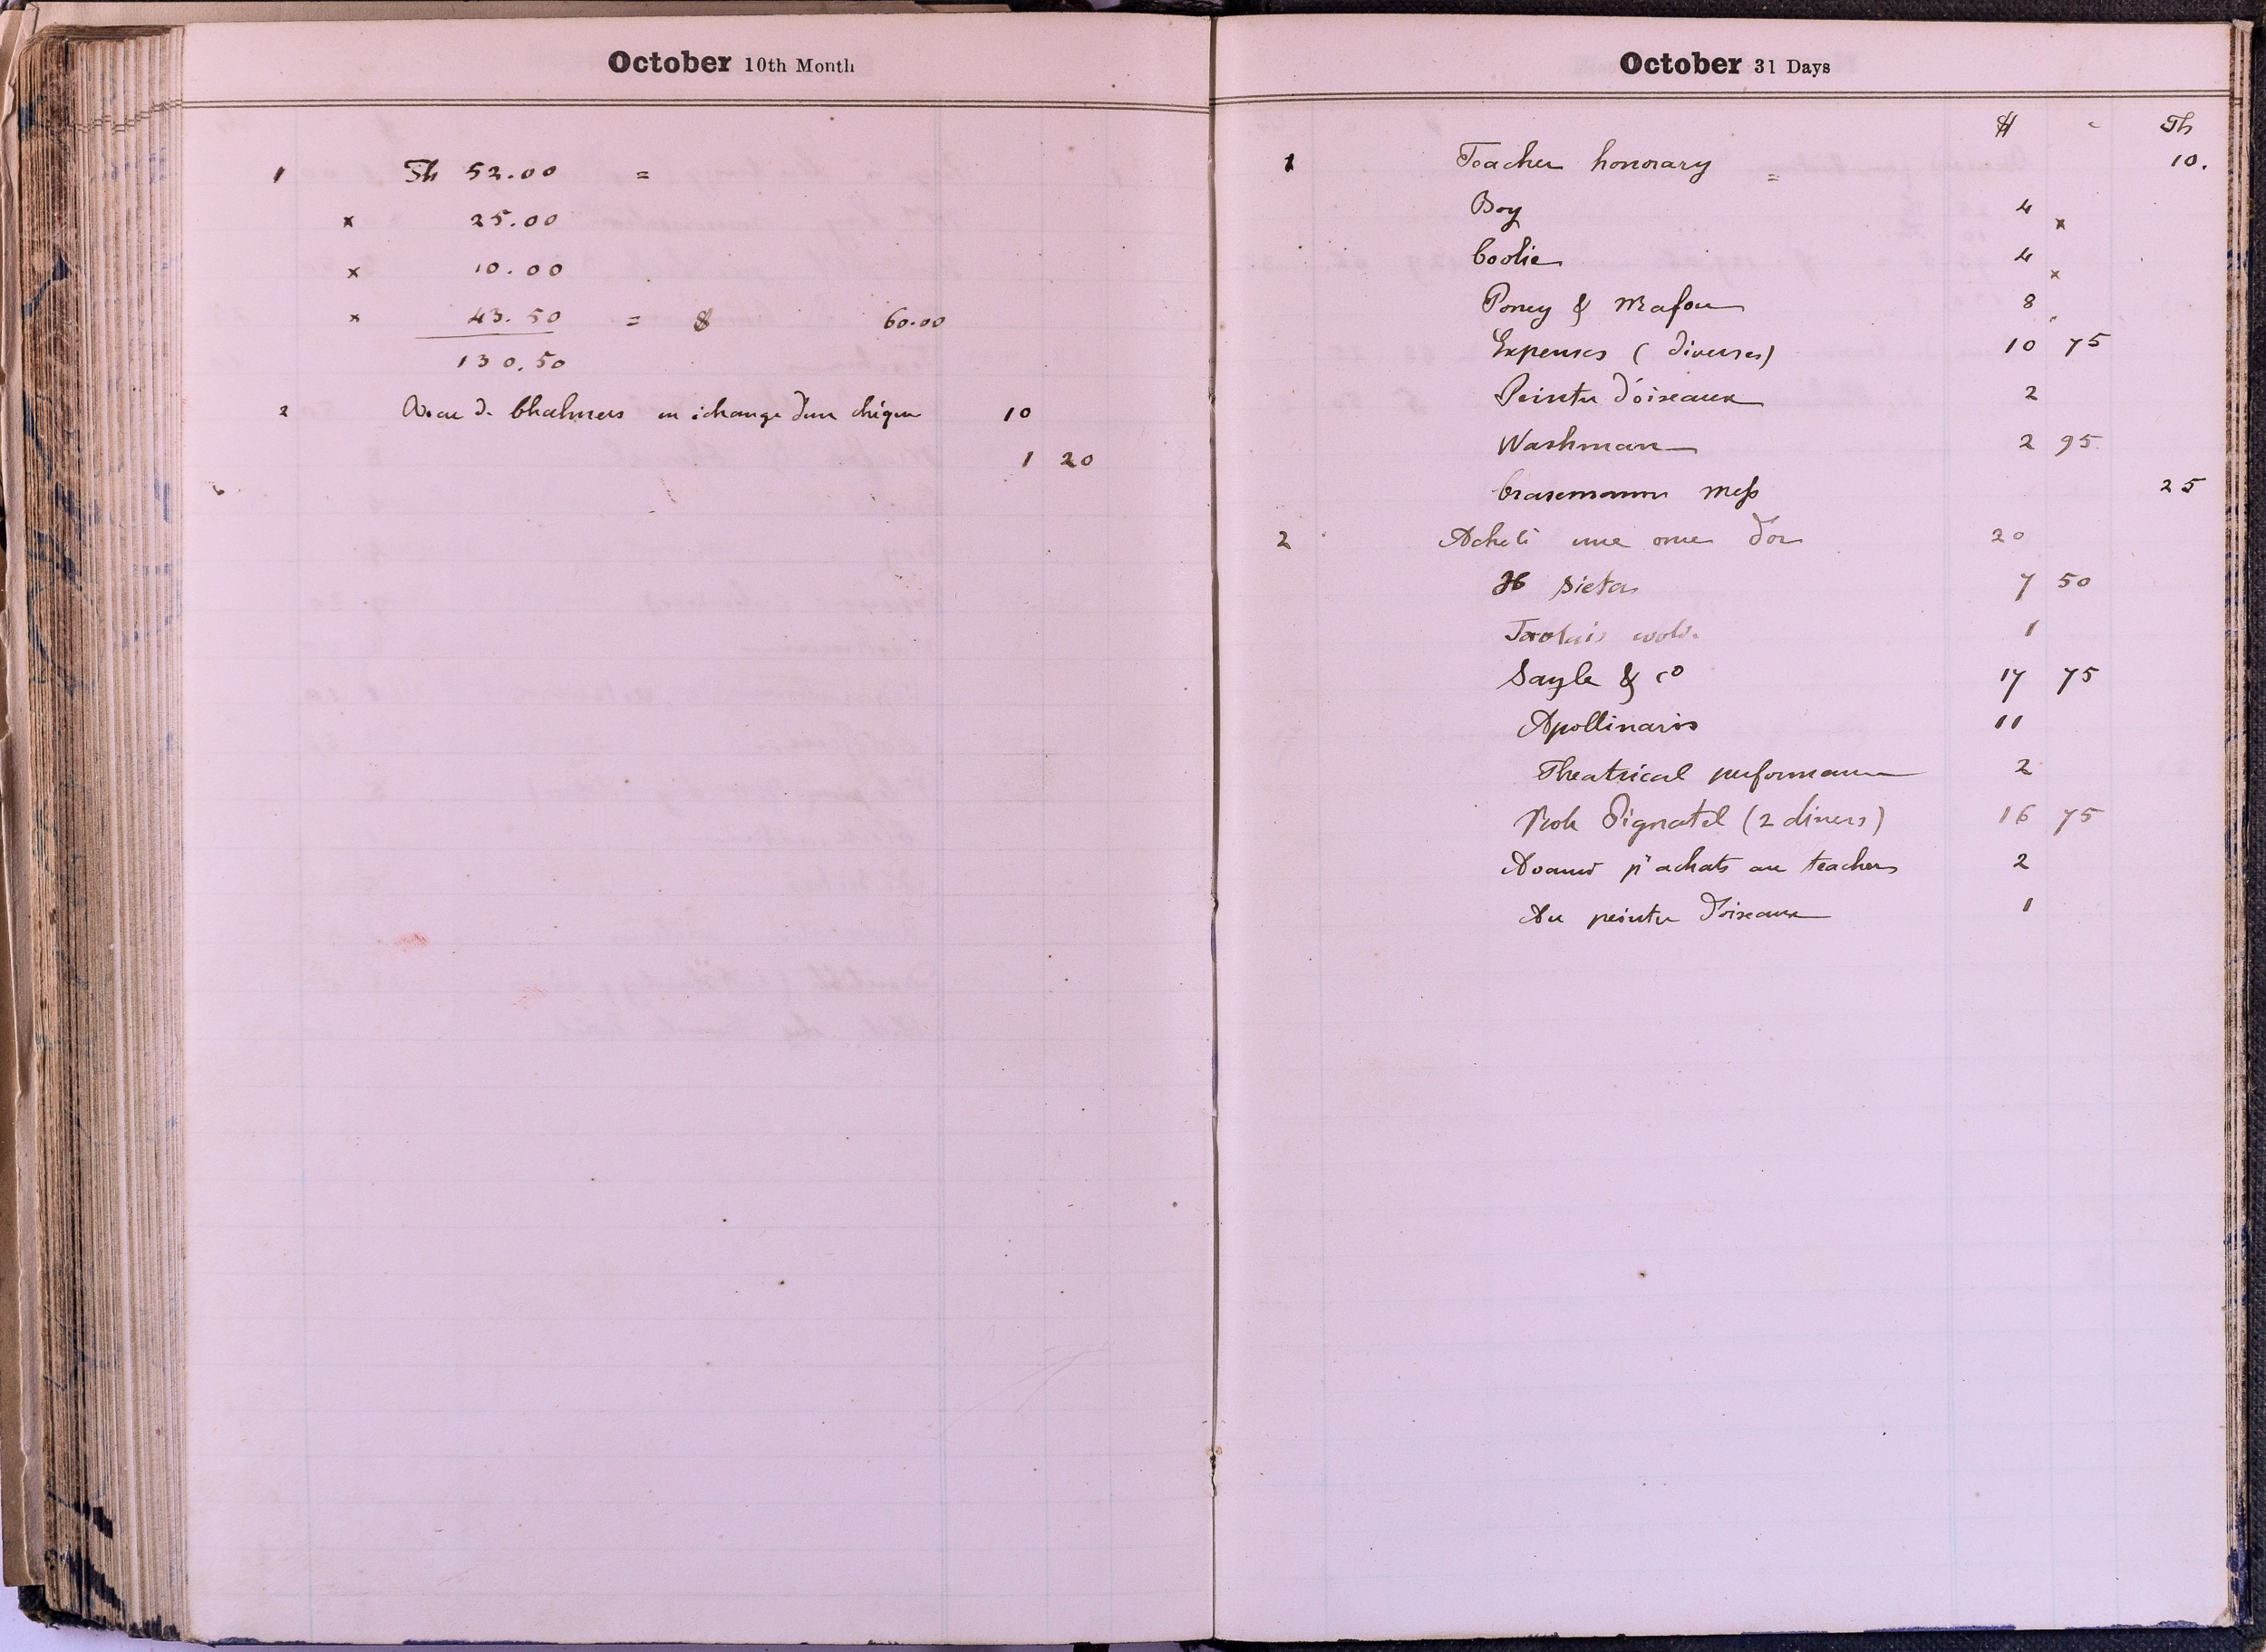 October 10th Month
1 Th 52.00 =
x 25.00
x 10.00
x 43.50 = $ 60.00
130.50
2 de Chalmers en échange d'un chèque 10
1 20
October 31 Days
$ - Th
1 Teacher honorary = 10.
Boy 4 x
Coolie 4 x
Poney & Mafou 8
Expenses (diverses) 10 75
Peintre d'oiseaux 2
Washman 2 95
Crasemann Mess 25
2 Acheté une once d'or 20
H Sietas 7 50
1
Sayle & Co 17 75
Apollinaris 11
Theatrical performance 2
Pignatel (2 diners) 16 75
Avance pr achats au teacher 2
Au peintre d'oiseaux 1